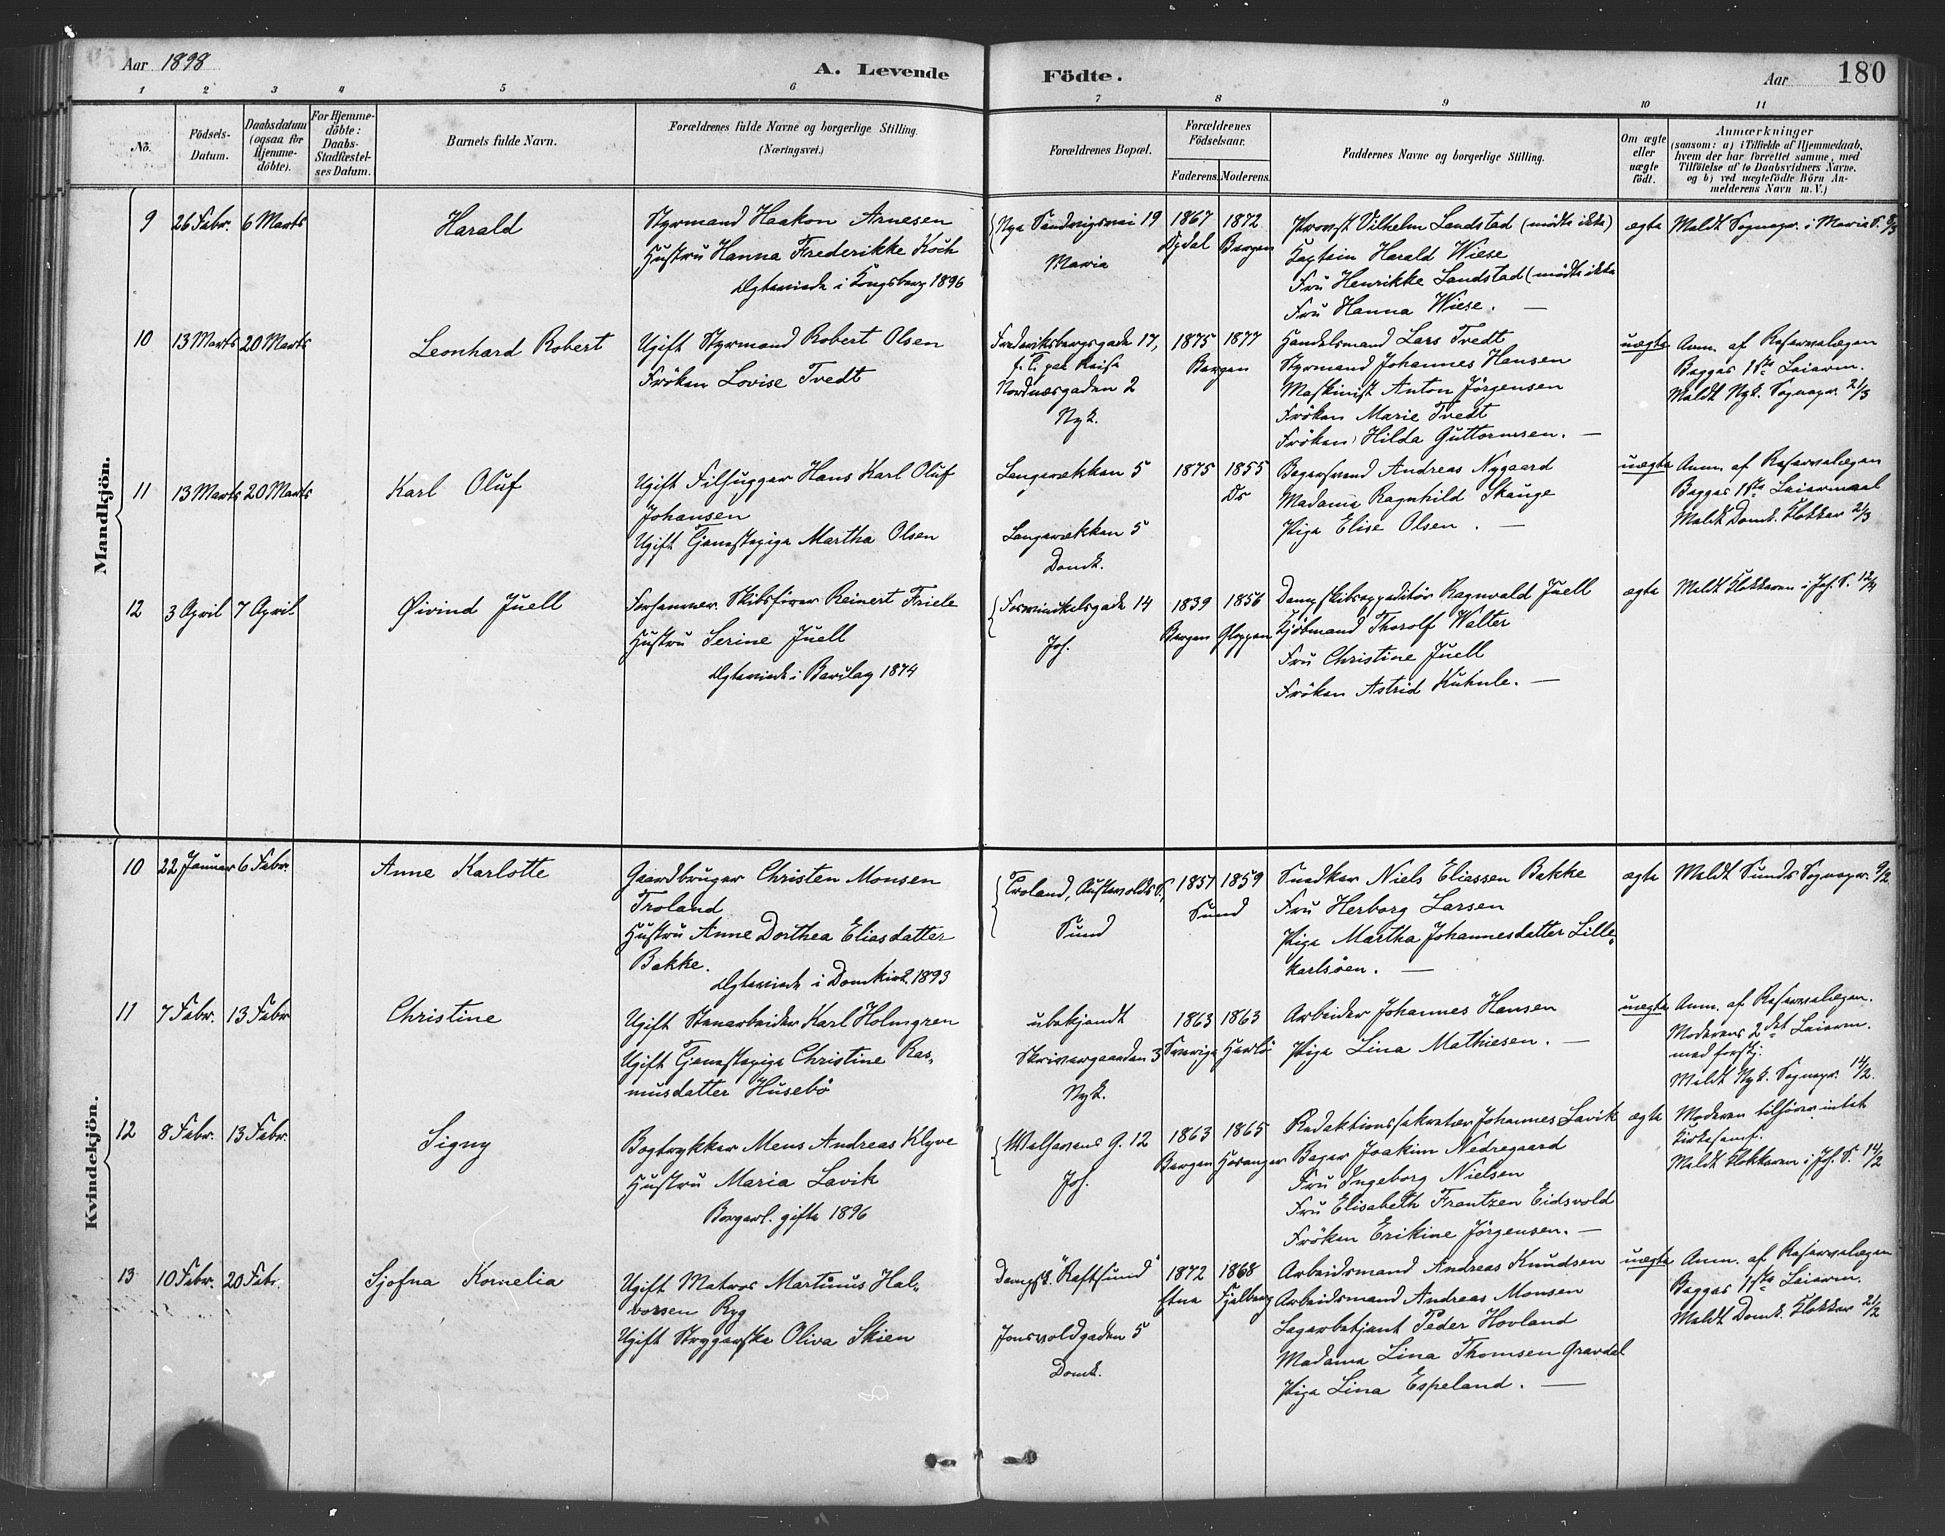 Aar 1898
A. Levende Födte.
Aar 180
1 2 3 4 5 6 7 8 9 10 11
No.
Födsels-
Datum.
Daabsdatum
(ogsaa for
Hjemme-
döbte).
For Hjemme-
döbte:
Daabs-
Stadfæstel-
ses Datum.
Barnets fulde Navn.
Forældrenes fulde Navne og borgerlige Stilling.
(Næringsvei.)
Forældrenes Bopæl.
Forældrenes
Födselsaar.
Faderens. Moderens.
Faddernes Navne og borgerlige Stilling.
Om ægte
eller
uægte
födt.
Anmærkninger
(saasom: a) i Tilfælde af Hjemmedaab,
hvem der har forrettet samme, med
Tilföielse af to Daabsvidners Navne.
og b) ved uægtefödte Börn An-
melderens Navn m. V.)
Mandkjön.
9 26 Febr. 6 Marts
Harald
Styrmand Haakon Arnesen
Hustru Hanna Frederikke Koch
Ægteviede i Kongsberg 1896
Nye Sandvigsvei 19
Maria
1867 1872
Bergen
Provst Vilhelm Landstad (mødte ikke)
Kaptein Harald Wiese
Fru Henrikke Landstad (mødte ikke
Fru Hanna Wiese. —
ægte
Meldt Sognepr. i Maria S. 8/3
10 13 Marts 20 Marts
Leonhard Robert
Ugift Styrmand Robert Olsen
Fröken Lovise Tvedt
Frederiksbergsgade 17,
f. T. paa Reise
Nordnæsgaden 2
Nyk.
1875 1877
Bergen
Handelsmand Lars Tvedt
Styrmand Johannes Hansen
Maskinist Anton Jørgensen
Frøken Marie Tvedt
Frøken Hilda Guttormsen. —
uægte
Anm. af Reservelægen
Begges 1ste Leierm.
Meldt Nyk. Sognepr. 21/3
11 13 Marts 20 Marts
Karl Oluf
Ugift Filhugger Hans Karl Oluf
Johansen
Ugift Tjenestepige Martha Olsen
Langerækken 5
Langerækken 5
Domk.
1875 1855
Do
Bagersvend Andreas Nygaard
Madame Ragnhild Skauge
Pige Elise Olsen. —
uægte
Anm. af Reservelægen
Begges 1ste Leiermaal
Meldt Domk. Klokker 21/3
12 3 April 7 April
Øivind Juell
Forhenvær. Skibsfører Reinert Friele
Hustru Serine Juell
Ægteviede i 1874
14
Joh.
1839 1856
Bergen Gloppen
Dampskibsexpeditör Ragnvald Juell
Kjöbmand Thorolf Walter
Fru Christine Juell
Frøken Astrid Kuhnle. —
ægte
Meldt Klokkeren i Joh. S. 12/4
Kvindekjön.
10 22 Januar 6 Febr.
Anne Karlotte
Gaardbruger Christen Monsen
Troland
Hustru Anne Dorthea Eliasdatter
Bakke.
Ægteviede i Domkirk. 1893
Troland, Austevolds S.,
Sund
1851 1859
Sund
Snedker Niels Eliassen Bakke
Fru Herborg Larsen
Pige Martha Johannesdatter Lille-
karlsöen. —
ægte
Meldt Sunds Sognepr. 9/2
11 7 Febr. 13 Febr
Christine
Ugift Stenarbeider Karl Holmgren
Ugift Tjenestepige Christine Ras-
musdatter Husebö
ubekjendt
Skrivergaarden 3
Nyk.
1863 1863
Sverige Herlö
Arbeider Johannes Hansen
Pige Lina Mathiesen. —
uægte
Anm. af Reservelægen.
Moderens 2det Leierm.
med forskj.
Meldt Nyk. Sognepr. 14/2.
12 8 Febr. 13 Febr.
Signy
Bogtrykker Mens Andreas Klyve
Hustru Maria Lavik
Borgerl. gifte 1896
G. 12
Joh.
1863 1865
Bergen
Redaktionssekretær Johannes Lavik
Bager Joakim Nedregaard
Fru Ingeborg Nielsen
Fru Elisabeth Frantzen Eidsvold
Frøken Erikine Jørgensen. —
ægte
Moderen tilhører intet
Kirkesamf.
Meldt Klokkeren i Joh. S. 14/2
13 10 Febr. 20 Febr.
Sjofna Kornelia
Ugift Matros Martinus Hal-
vorsen Ryg
Ugift Strygerske Oliva Skien
Dampsk. "Raftsund"
Jonsvoldgaden 5
Domk.
1872 1868
Etne Fjelberg
Arbeidsmand Andreas Knudsen
Arbeidsmand Andreas Monsen
Lagerbetjent Peder Hovland
Madame Lina Thomsen Gravdal
Pige Lina Espeland. —
uægte
Anm. af Reservelægen
Begges 1ste Leierm.
Meldt Domk. Klokker 21/2